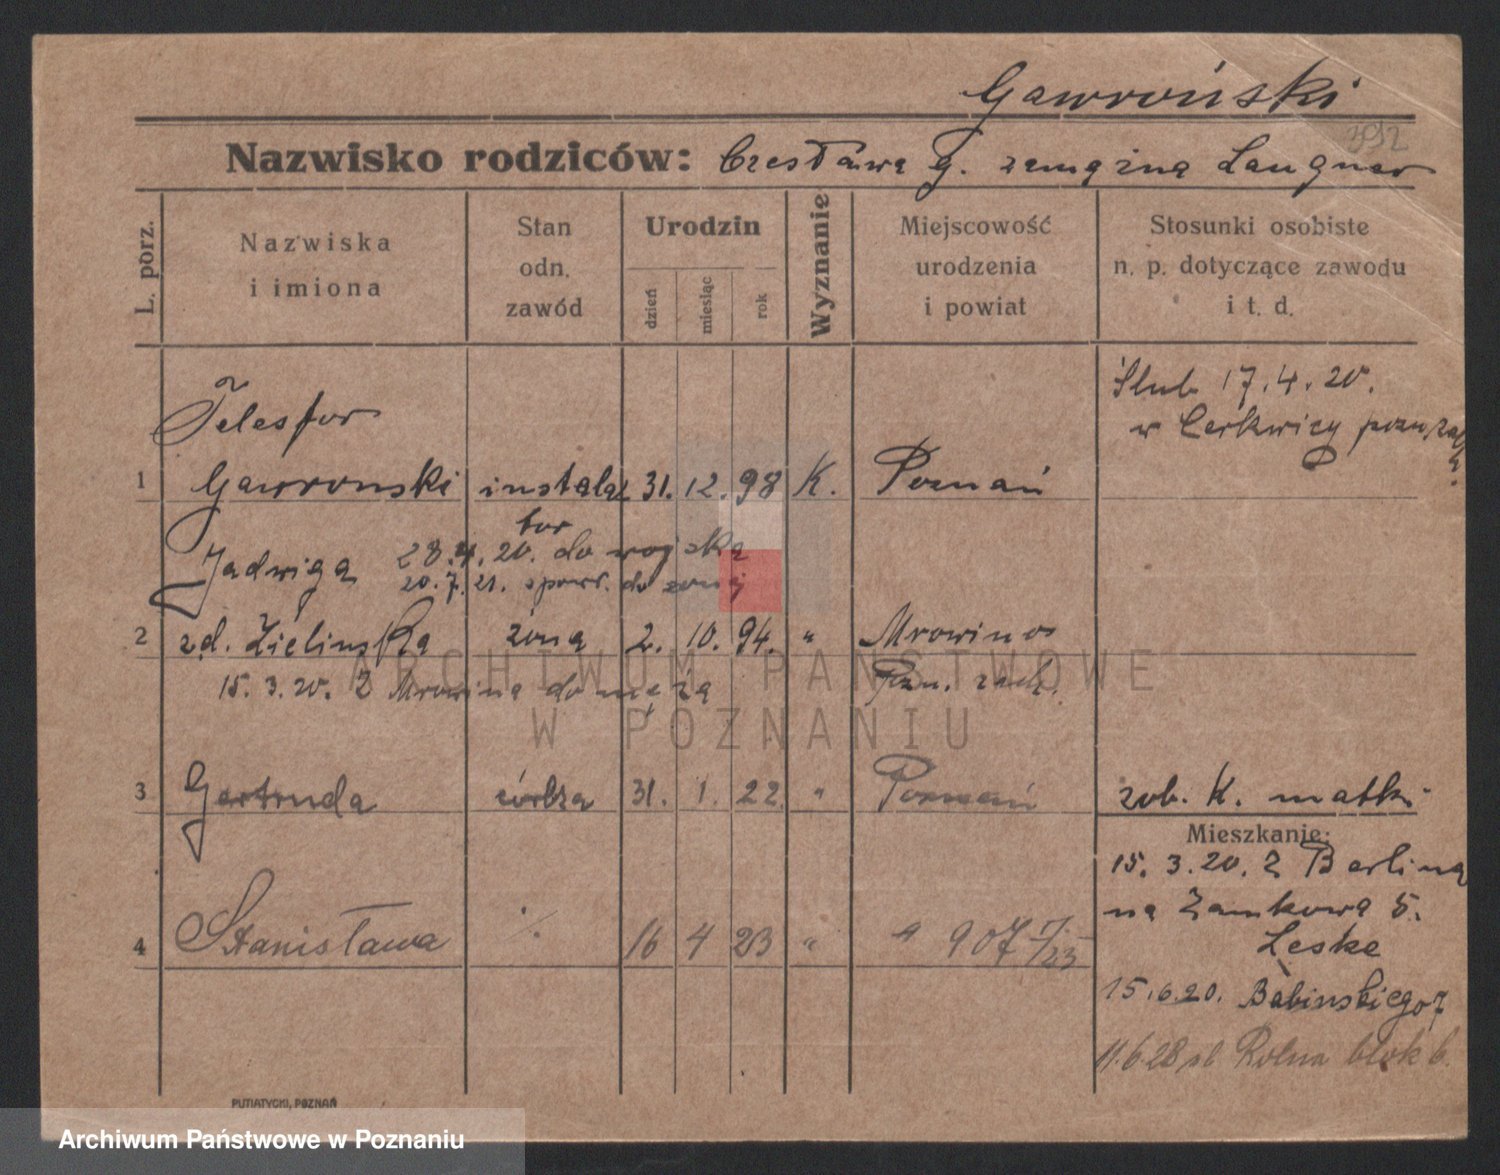 Gawroński
392
Nazwisko rodziców: Czesława g. zamężna Langner
L. porz.
Nazwiska
i imiona
Stan
odn.
zawód
Urodzin
dzień
miesiąc
rok
Wyznanie
Miejscowość
urodzenia
i powiat
Stosunki osobiste
n. p. dotyczące zawodu
i t. d.
Ślub 17.4.20.
w Cerkwicy
Telesfor
1 Gawronski instala 31. 12. 98 K. Poznań
tor
28.4.20. do wojska
Jadwiga 20.7.21. z powr. do żony
2 zd. Zielinska żona 2. 10. 94. " Mrowino
15.3.20. Z Mrowina do męża Pzn. zach.
3 Gertruda córka 31. 1. 22 " Poznań zob. K. matki
Mieszkanie:
15.3.20. Z Berlina
na Zamkowa 5.
Leske
4 Stanisława 16 4 23 " " 907
15.6.20. Babinskiego 7
11.6.28 Rolna blok 6.
PUTIATYCKI, POZNAŃ
ARCHIWUM PAŃSTWOWE
W POZNANIU
Archiwum Państwowe w Poznaniu